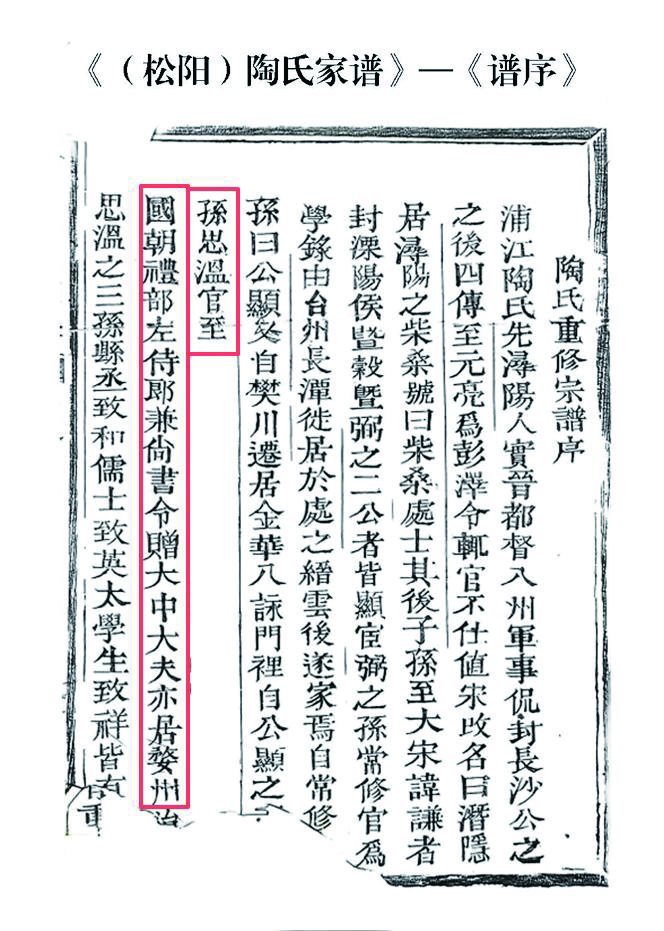 《（松阳）陶氏家谱》—《谱序》
陶氏重修宗譜序
浦江陶氏先潯陽人實晉都督八州軍事侃封長沙公之
之後四傳至元亮為彭澤令輒官不仕值宋改名曰潛隱
居潯陽之柴桑號曰柴桑處士其後子孫至大宋諱謙者
封溧陽侯暨穀暨弼之二公者皆顯宦弼之孫常修官為
學錄由台州長潭徙居於處之縉雲後遂家焉自常修
孫曰公顯又自樊川遷居金華八詠門裡自公顯之
孫思溫官至
國朝禮部左侍郎兼尚書令贈大中大夫亦居婺州
思溫之三孫縣丞致和儒士致英太學生致祥皆有